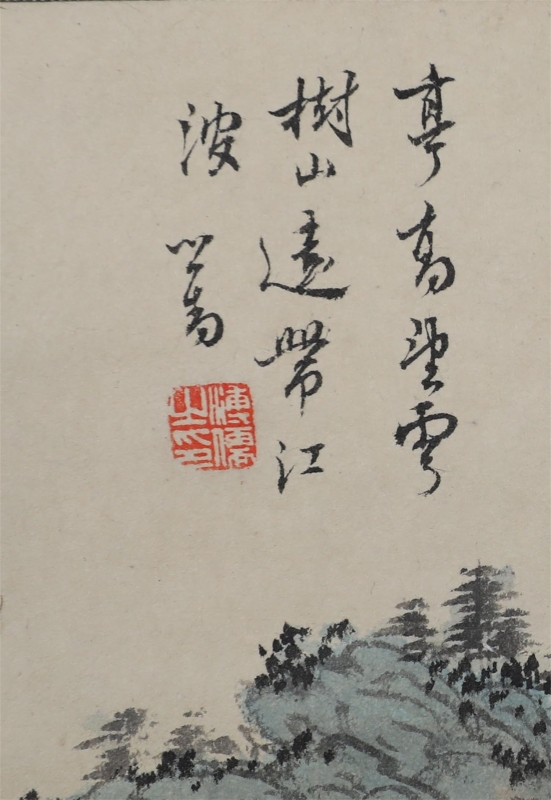 亭高望雲
樹山遠帶江
波 心畬
溥儒之印